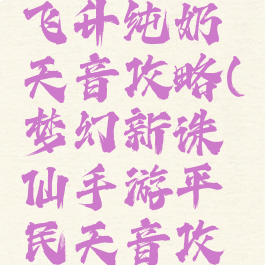 飞升纯奶
天音攻略(
梦幻新诛
仙手游平
民天音攻